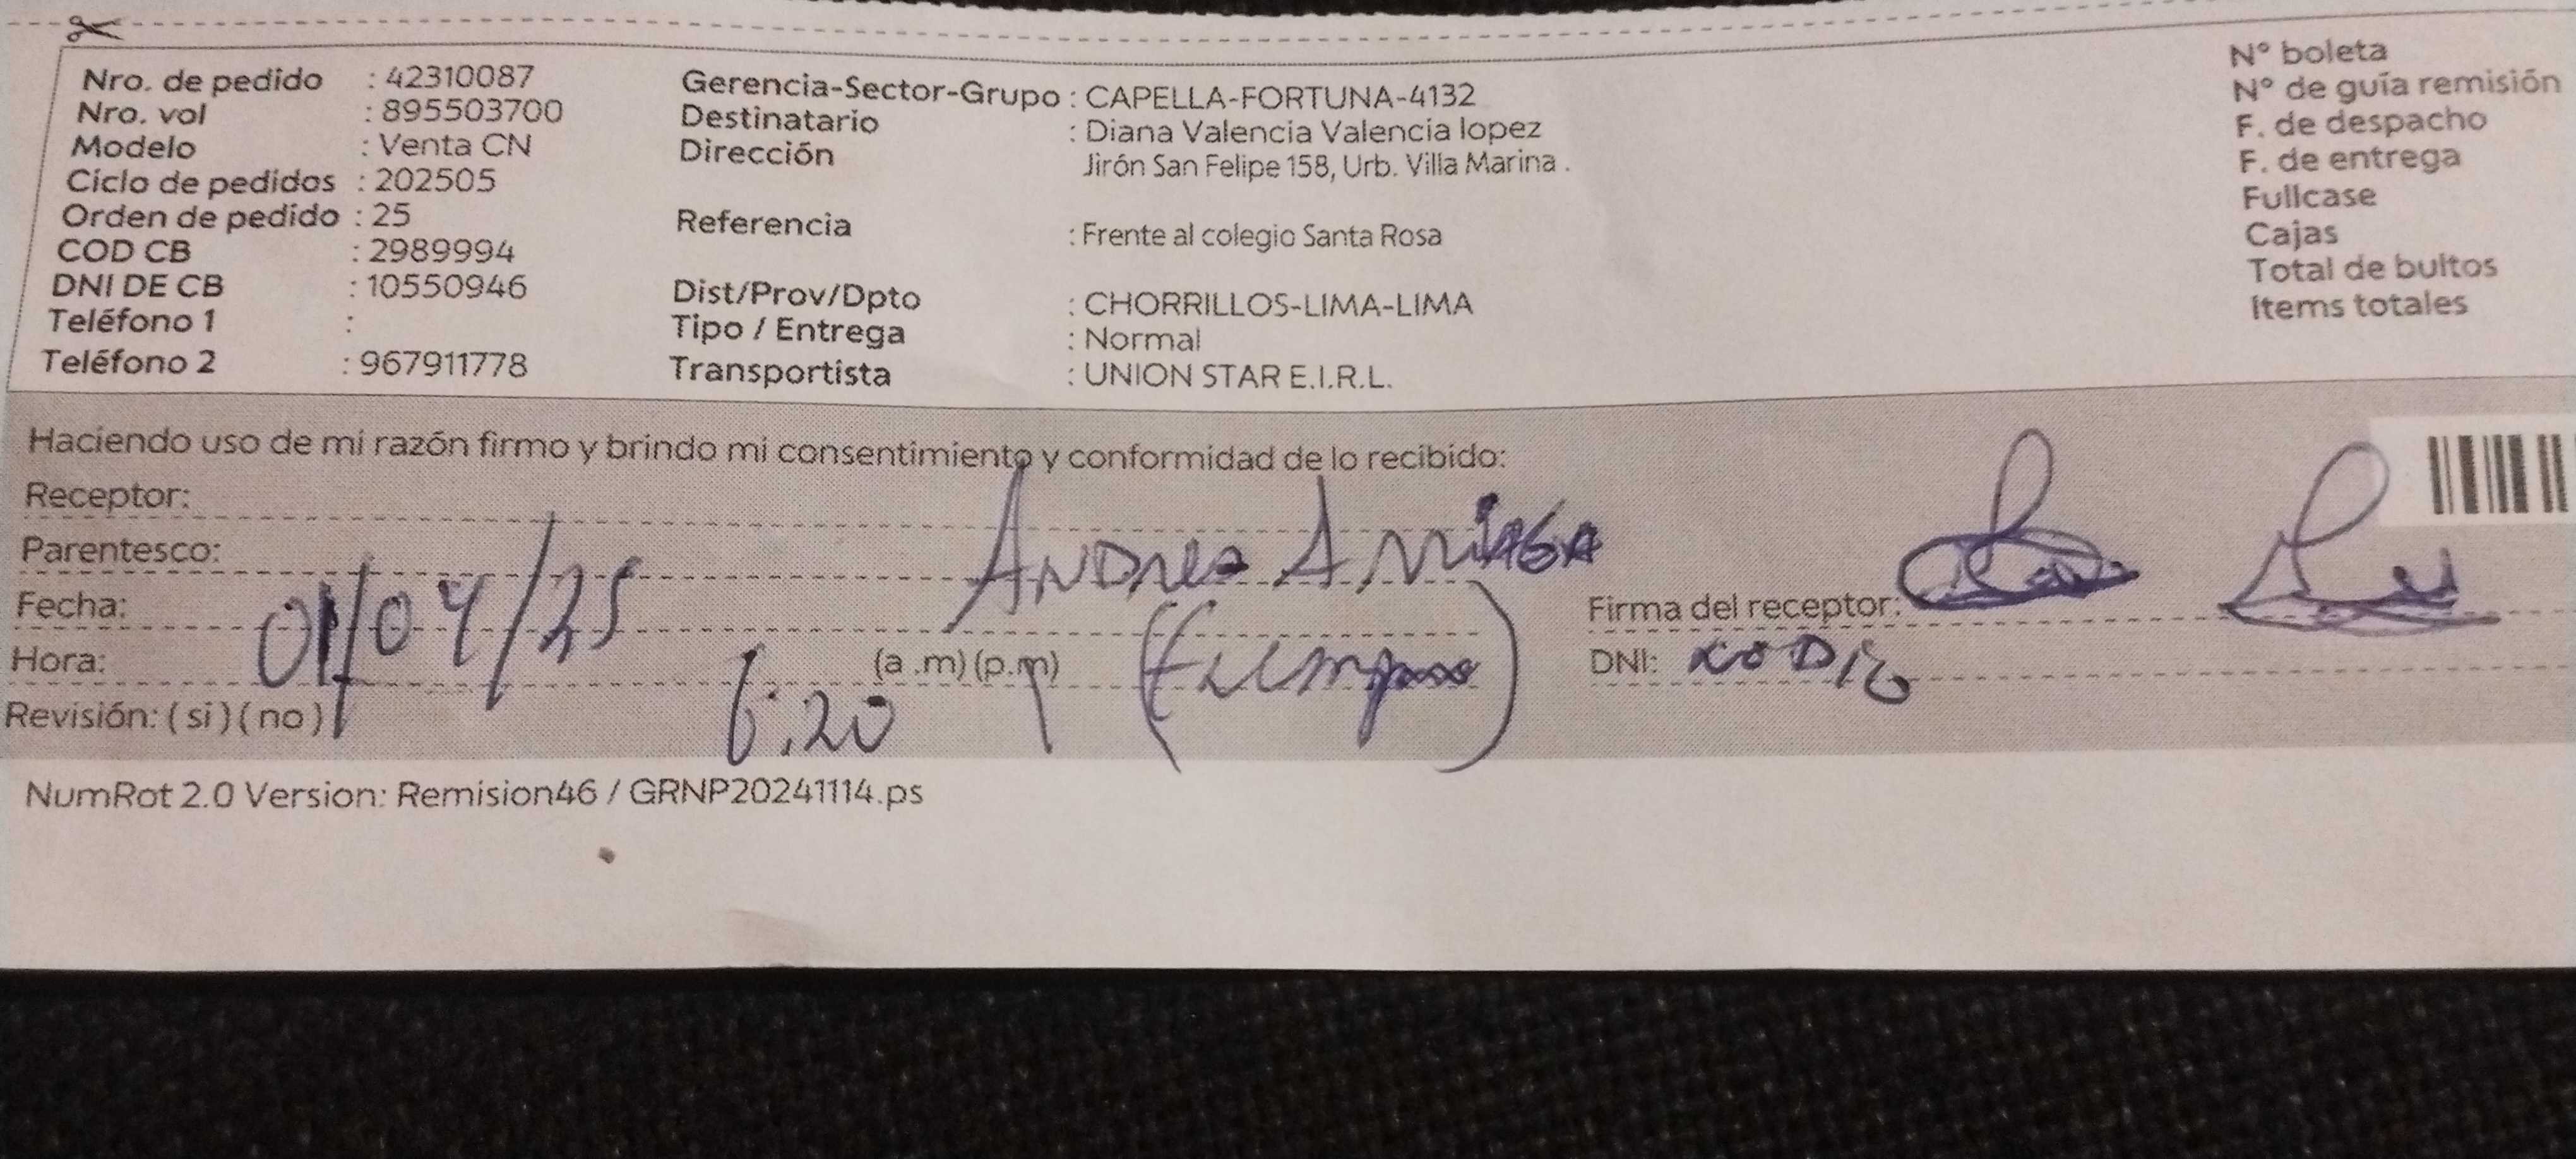 Nro. de pedido : 42310087
Nro. vol : 895503700
Modelo : Venta CN
Ciclo de pedidos : 202505
Orden de pedido : 25
COD CB : 2989994
DNI DE CB : 10550946
Teléfono 1 :
Teléfono 2 : 967911778
Gerencia-Sector-Grupo : CAPELLA-FORTUNA-4132
Destinatario : Diana Valencia Valencia lopez
Dirección Jirón San Felipe 158, Urb. Villa Marina .
Referencia : Frente al colegio Santa Rosa
Dist/Prov/Dpto : CHORRILLOS-LIMA-LIMA
Tipo / Entrega : Normal
Transportista : UNION STAR E.I.R.L.
N° boleta
N° de guía remisión
F. de despacho
F. de entrega
Fullcase
Cajas
Total de bultos
Items totales
Haciendo uso de mi razón firmo y brindo mi consentimiento y conformidad de lo recibido:
Receptor:
Parentesco: ANDREA ARRIAGA
Fecha: 01/04/25
Hora: 6:20 (a .m) (p.m)
Revisión: ( si ) ( no )
Firma del receptor:
DNI:
NumRot 2.0 Version: Remision46 / GRNP20241114.ps